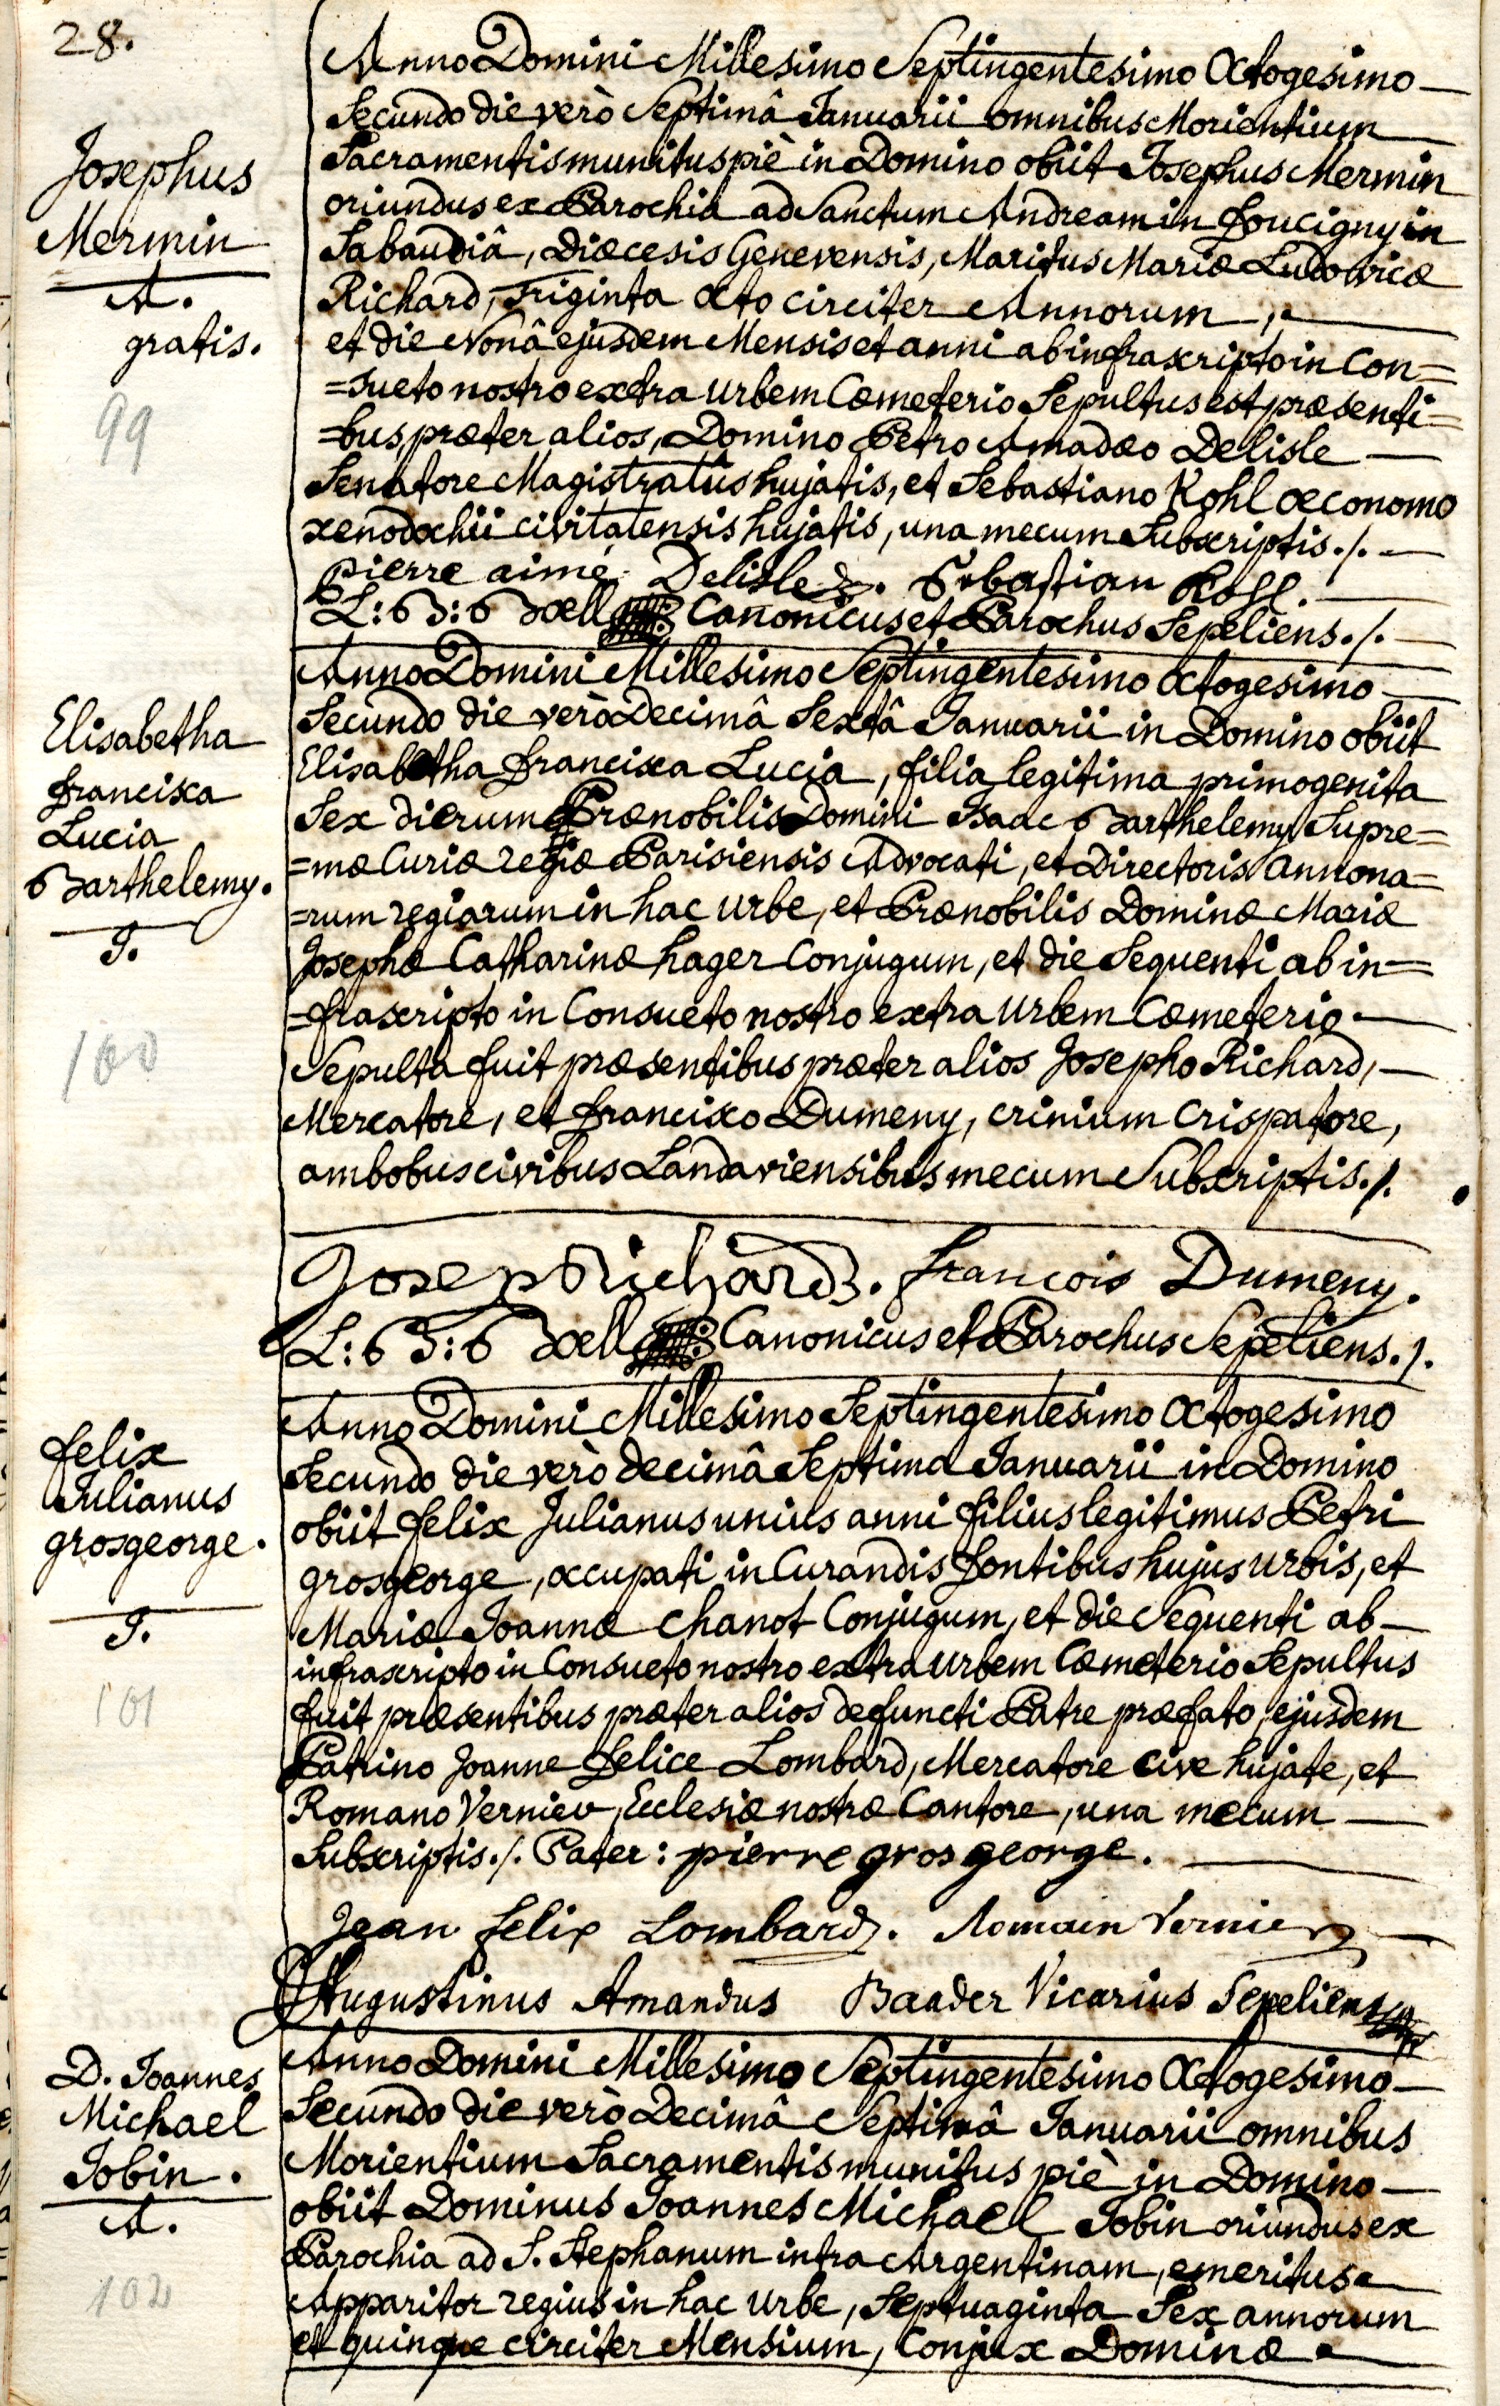 28.
Josephus
Mermin
A.
gratis.
99
Anno Domini Millesimo Septingentesimo Octogesimo
Secundo die verò Septimâ Januarii omnibus Morientium
Sacramentis munitus piè in Domino obiit Josephus Mermin
oriundus ex Parochiâ ad Sanctum Andream in foucigny in
Sabaudiâ, Diœcesis Genevensis, Maritus Mariæ Ludovicæ
Richard, Triginta octo circiter Annorum,
et die Nonâ ejusdem Mensis et anni ab infrascripto in Con=
=sueto nostro extra Urbem Cœmeterio Sepultus est præsenti=
=bus, præter alios, Domino Petro Amadæo Delisle
Senatore Magistratûs hujatis, et Sebastiano Kohl œconomo
xenodochii civitatensis hujatis, una mecum Subscriptis./.
pierre aimé Delisle. Sebastian Kohl.
Canonicus et Parochus Sepeliens./.
Elisabetha
francisca
Lucia
Barthelemy.
J.
100
Anno Domini Millesimo Septingentesimo Octogesimo
Secundo die verò Decimâ Sextâ Januarii in Domino obiit
Elisabetha francisca Lucia, filia legitima primogenita
Sex dierum Prænobilis Domini Isaac Barthelemy Supre=
=mæ Curiæ regiæ Parisiensis Advocati, et Directoris annona=
=rum regiarum in hac Urbe, et Prænobilis Dominæ Mariæ
Josephæ Catharinæ hager Conjugum, et die Sequenti ab in=
=frascripto in Consueto nostro extra Urbem Cœmeterio
Sepulta fuit præsentibus præter alios Josepho Richard,
Mercatore, et francisco Dumeny, crinium Crispatore,
ambobus civibus Landaviensibus mecum Subscriptis./.
Josep Richard. francois Dumeny.
Canonicus et Parochus Sepeliens./.
felix
Julianus
grosgeorge.
J.
101
Anno Domini Millesimo Septingentesimo Octogesimo
Secundo die verò decimâ Septima Januarii in Domino
obiit felix Julianus unius anni filius legitimus Petri
grosgeorge, occupati in Curandis fontibus hujus Urbis, et
Mariæ Joannæ Chanot Conjugum, et die Sequenti ab
infrascripto in Consueto nostro extra Urbem Cœmeterio Sepultus
fuit præsentibus præter alios defuncti Patre præfato, ejusdem
Patrino Joanne felice Lombard, Mercatore cive hujate, et
Romano Vernier, Ecclesiæ nostræ Cantore, una mecum
Subscriptis./. Pater: pierre gros george.
Jean felix Lombard. Romain Vernier
Augustinus Amandus Baader Vicarius Sepeliens
D. Joannes
Michael
Jobin.
A.
102
Anno Domini Millesimo Septingentesimo Octogesimo
Secundo die verò Decimâ Septimâ Januarii omnibus
Morientium Sacramentis munitus piè in Domino
obiit Dominus Joannes Michael Jobin oriundus ex
Parochia ad S. Stephanum intra Argentinam, emeritus
Apparitor regius in hac Urbe, Septuaginta Sex annorum
et quinque circiter Mensium, Conjux Dominæ